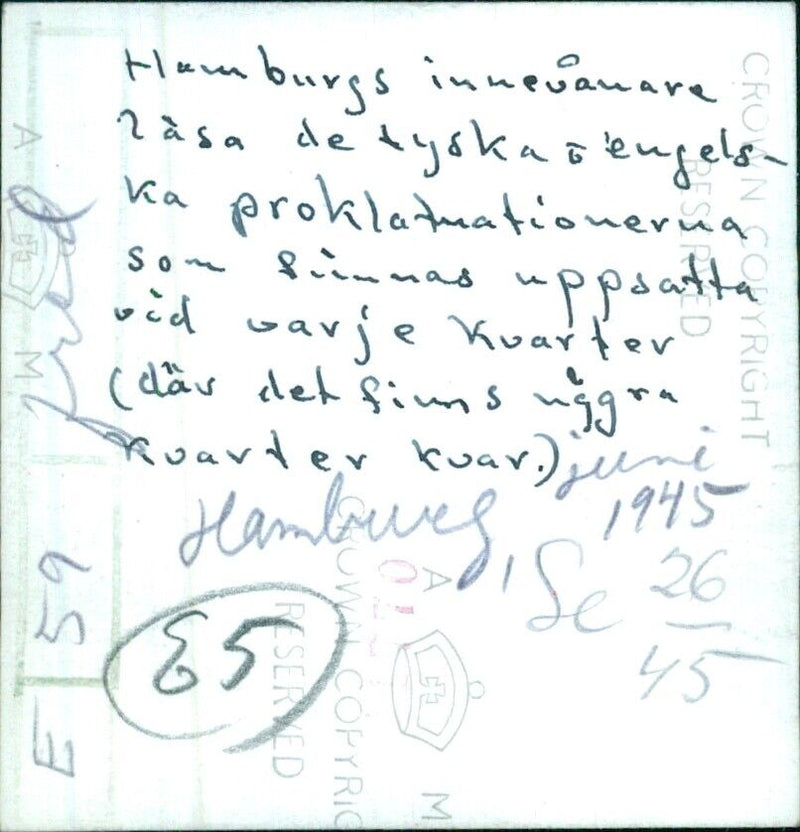 Hamburgs innevånare
läsa de tyska o engels-
ka proklamationerna
som finnas uppsatta
vid varje kvarter
(där det finns några
kvarter kvar.) juni
1945
Hamburg,
Se 26
45
E5
E 59
CROWN COPYRIGHT
RESERVED
CROWN COPYRIG
RESERVED
A M
A M